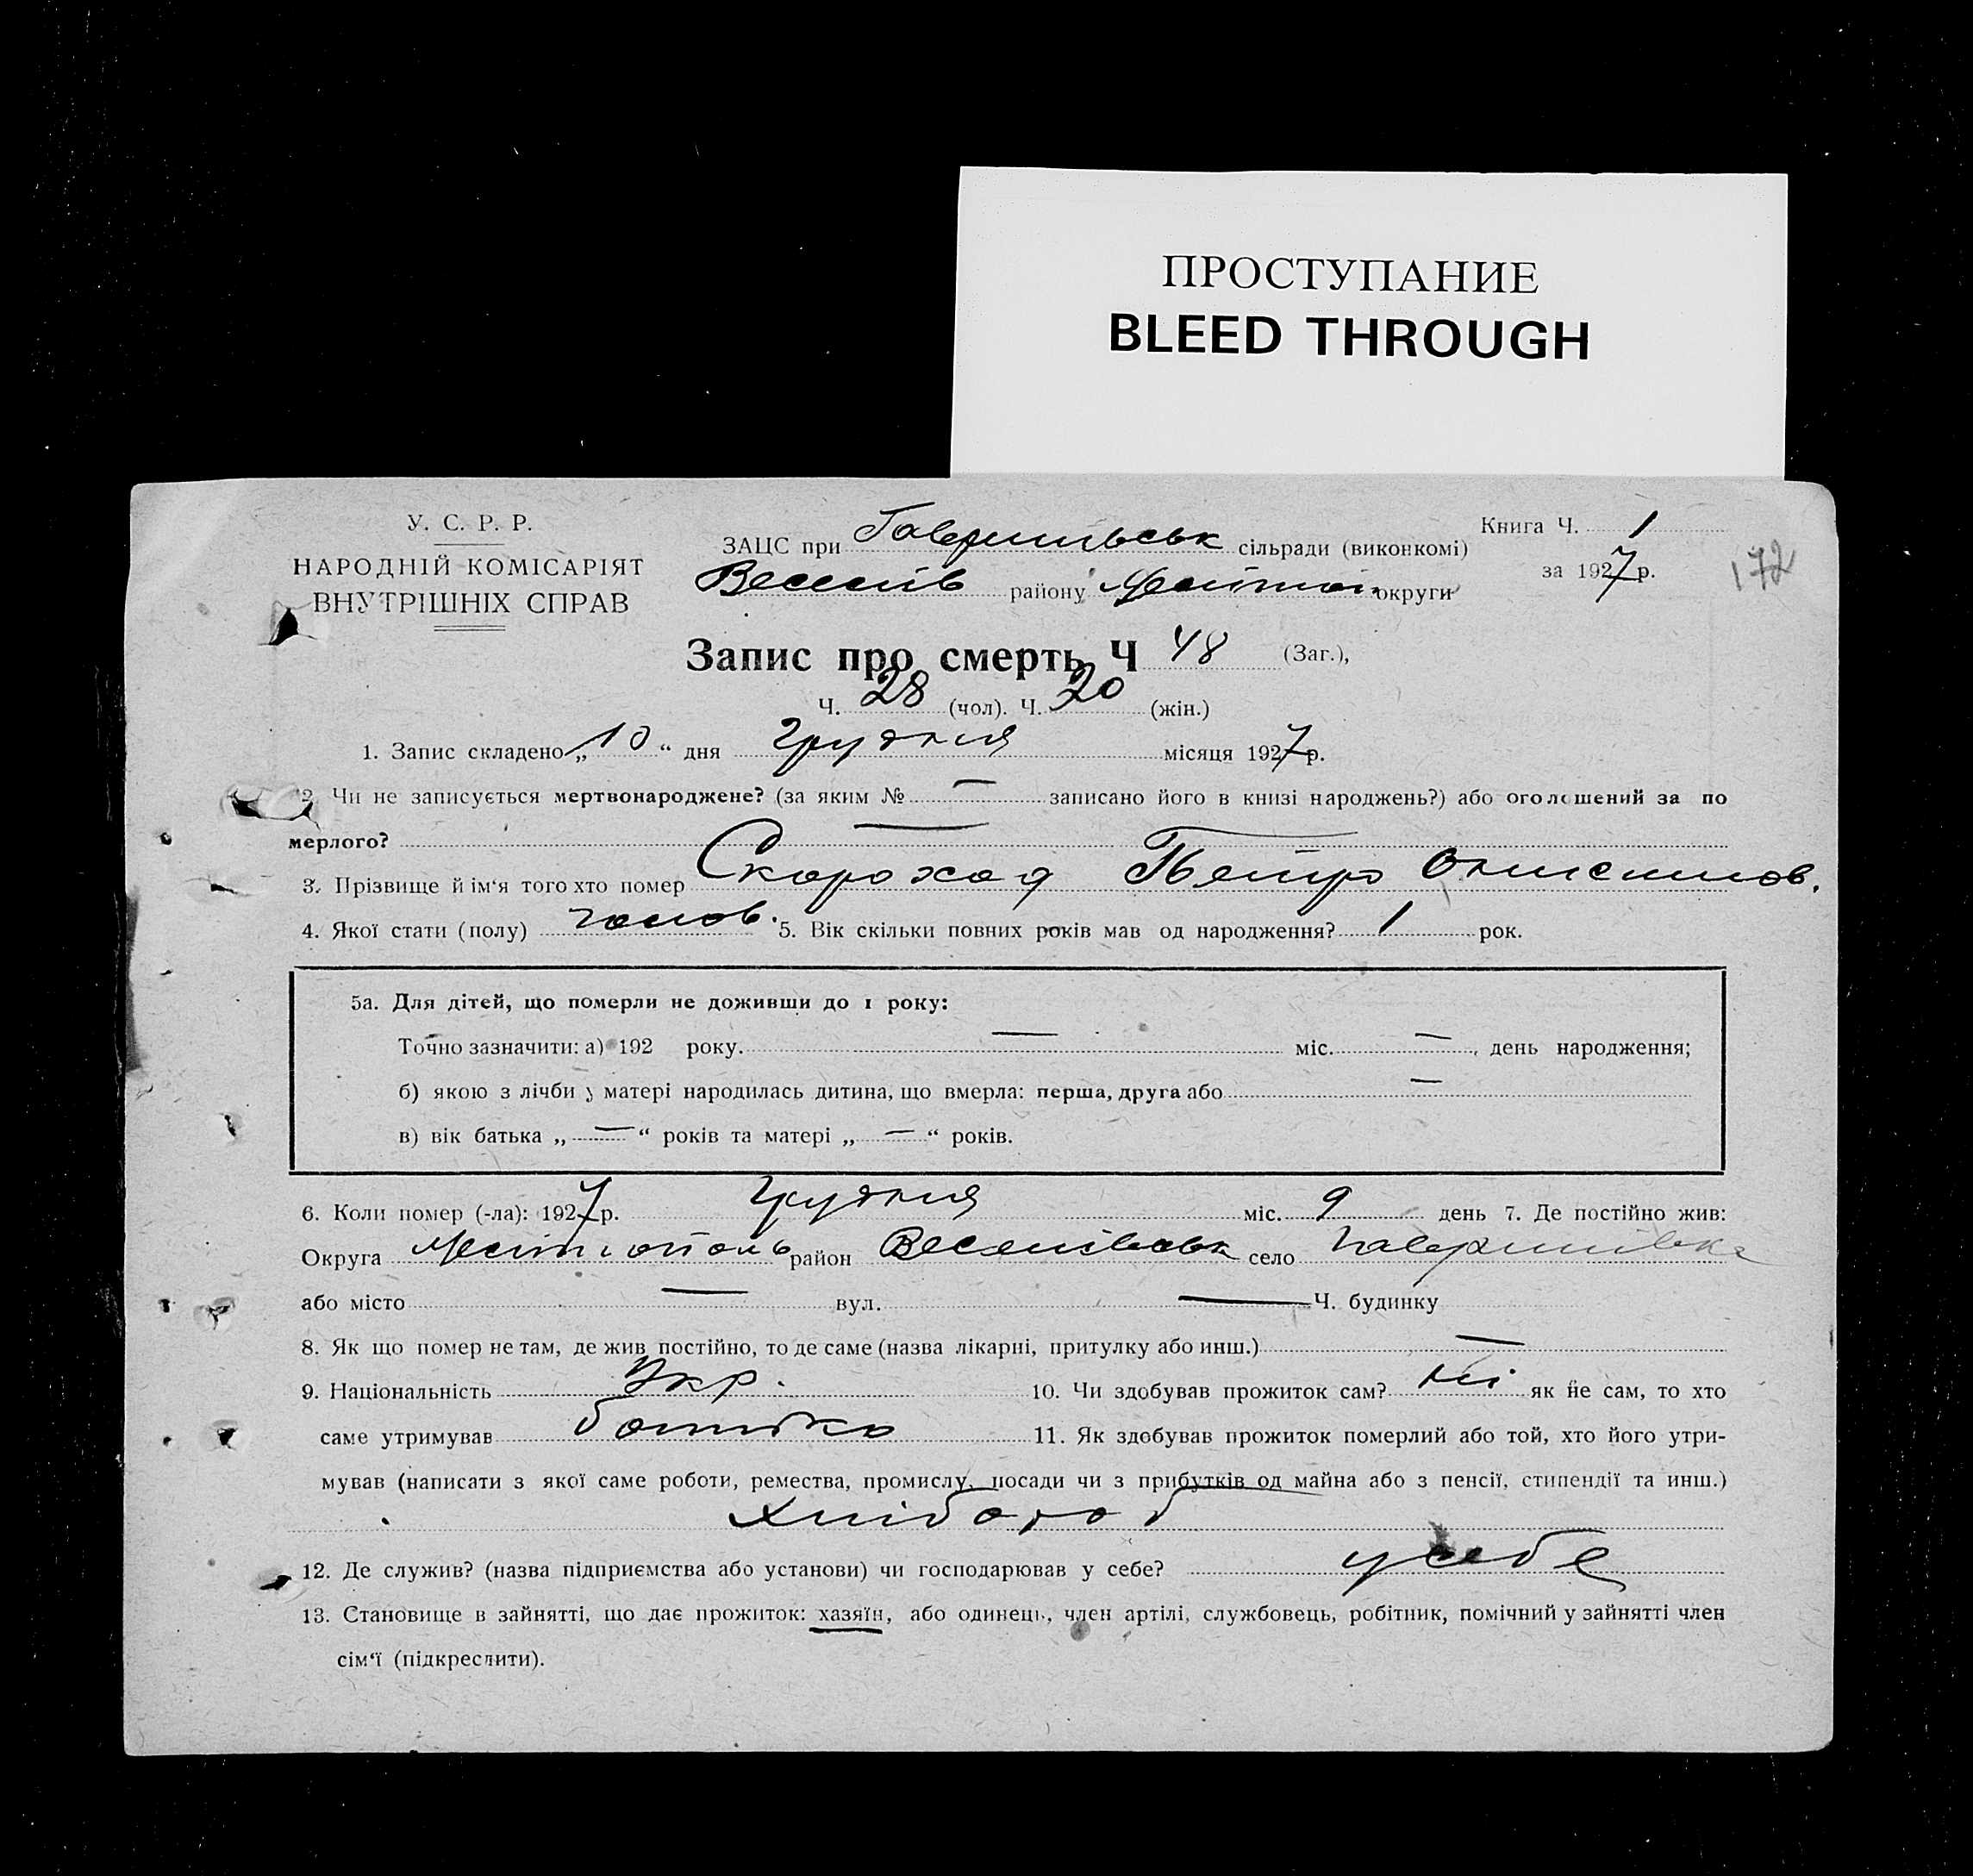 ПРОСТУПАНИЕ
BLEED THROUGH
У. С. Р. Р.
НАРОДНІЙ КОМІСАРІЯТ
ВНУТРІШНІХ СПРАВ
ЗАЦС при Гаврильськ сільради (виконкомі)
Веселів району Меліт. округи
Книга Ч. 1
за 1927 р.
172
Запис про смерть Ч 48 (Заг.),
Ч. 28 (чол). Ч. 20 (жін.)
1. Запис складено „10“ дня Грудня місяця 1927 р.
2. Чи не записується мертвонароджене? (за яким № — записано його в книзі народжень?) або оголошений за по
мерлого? —
3. Прізвище й ім‘я того хто помер Скороход Петро Онисимов.
4. Якої стати (полу) чолов. 5. Вік скільки повних років мав од народження? 1 рок.
5а. Для дітей, що померли не доживши до 1 року:
Точно зазначити: а) 192 року. — міс. —, день народження;
б) якою з лічби у матері народилась дитина, що вмерла: перша, друга або —
в) вік батька „—“ років та матері „—“ років.
6. Коли помер (-ла): 1927 р. Грудня міс. 9 день 7. Де постійно жив:
Округа Мелітополь район Веселівськ село Гаврилівка
або місто — вул. — Ч. будинку
8. Як що помер не там, де жив постійно, то де саме (назва лікарні, притулку або инш.) —
9. Національність Укр. 10. Чи здобував прожиток сам? Ні як не сам, то хто
саме утримував батько 11. Як здобував прожиток померлий або той, хто його утри-
мував (написати з якої саме роботи, ремества, промислу, посади чи з прибутків од майна або з пенсії, стипендії та инш.)
хлібороб
12. Де служив? (назва підприємства або установи) чи господарював у себе? у себе
13. Становище в зайнятті, що дає прожиток: хазяїн, або одинець, член артілі, службовець, робітник, помічний у зайнятті член
сім‘ї (підкреслити).